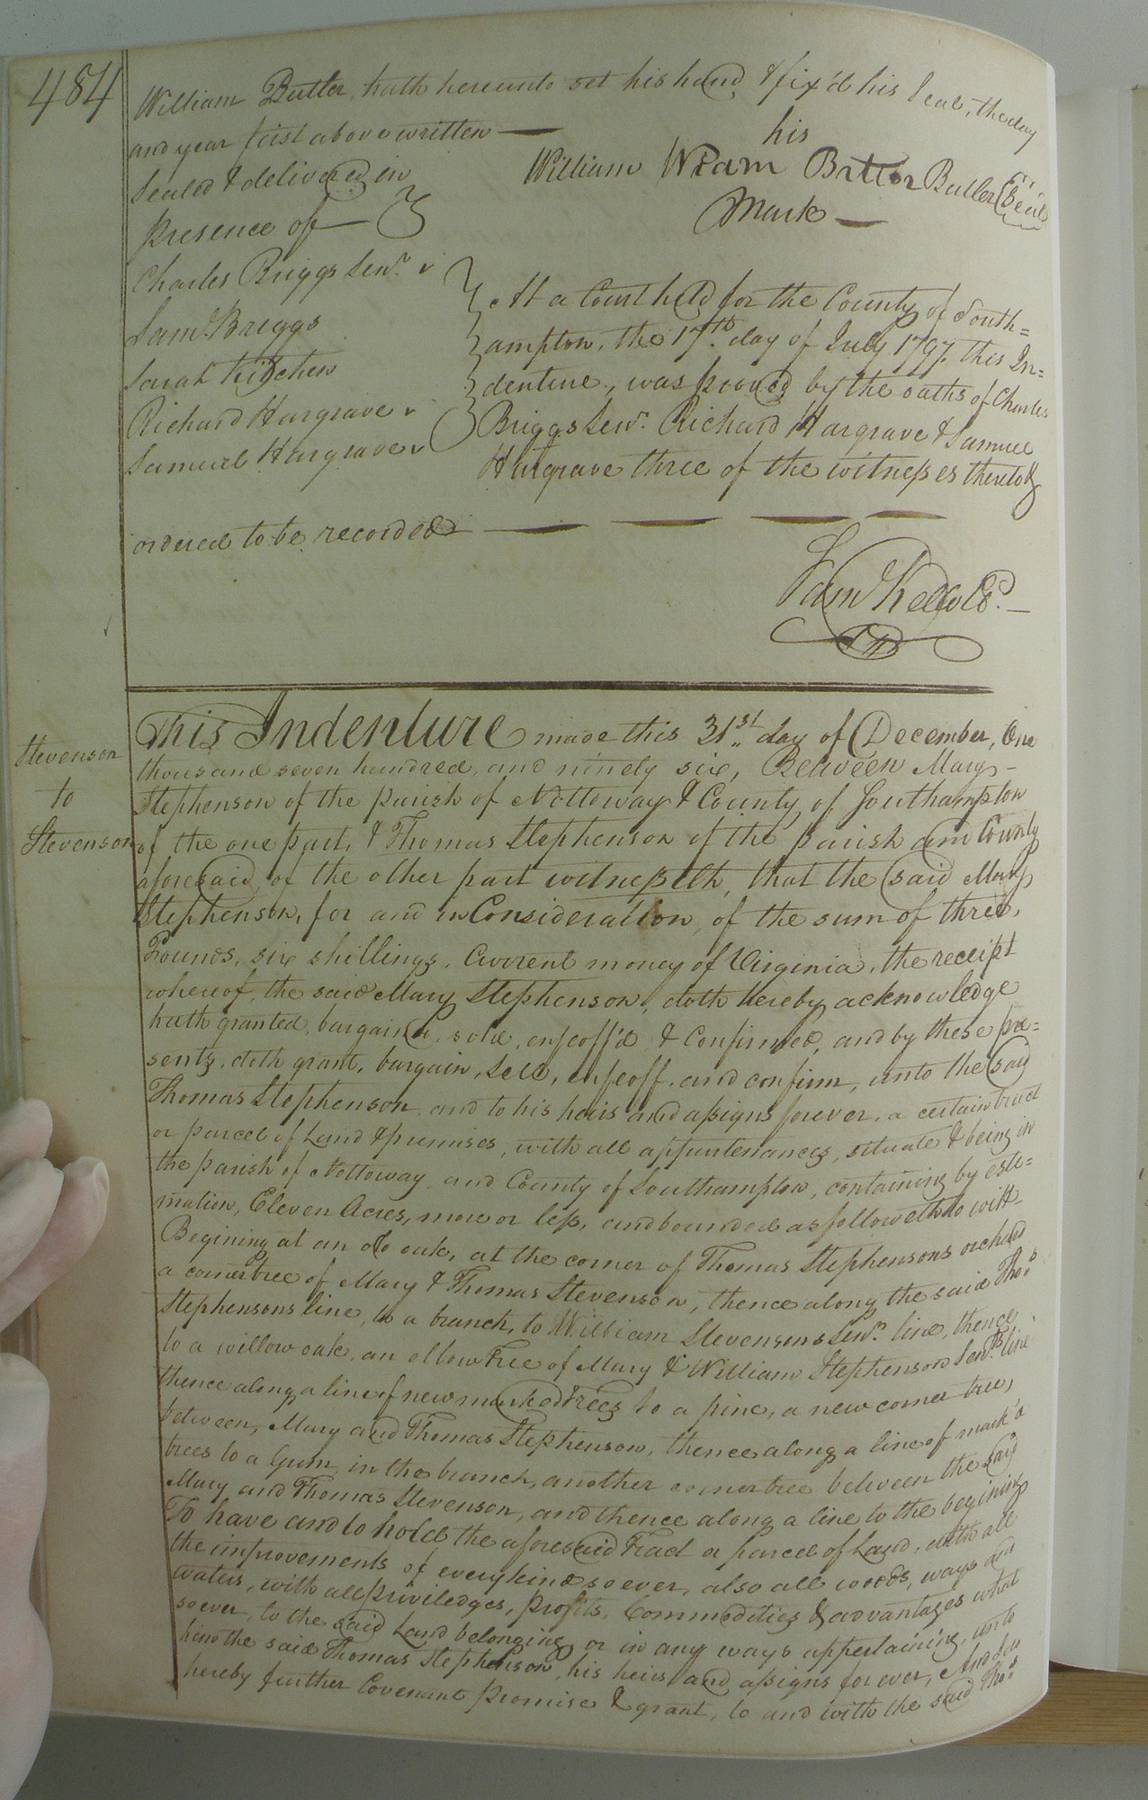 484
William Butler, hath hereunto set his hand & fix'd his Seal, the day
and year first above written —
Sealed & delivered in
presence of —
his
William Wram Brtlor Butler Seal
Mark —
Charles Briggs Senr.
Saml. Briggs
Sarah Kitchen
Richard Hargrave
Samuel Hargrave
At a Court held for the County of South=
ampton, the 17th. day of July 1797. this In=
denture, was proved by the oaths of Charles
Briggs Senr. Richard Hargrave & Samuel
Hargrave three of the witnesses thereto &
ordered to be recorded —
Saml Kello Cl. —
Stevenson
to
Stevenson
This Indenture made this 31st. day of December, One
thousand seven hundred, and ninety six, Between Mary
Stephenson of the parish of Nottoway & County, of Southampton
of the one part, & Thomas Stephenson of the parish and County
aforesaid, of the other part witnesseth, that the said Mary
Stephenson, for and in Consideration, of the sum of three,
Pounds, six shillings, Current money of Virginia, the receipt
whereof, the said Mary Stephenson, doth hereby acknowledge
hath granted, bargained, sold, enfeoff'd & Confirmed, and by these pre=
sents, doth grant, bargain, sell, enfeoff. and confirm, unto the said
Thomas Stephenson and to his heirs and assigns forever, a certain tract
or parcel of Land & premises, with all appurtenances, situate & being in
the parish of Nottoway, and County of Southampton, containing by este=
mation, Eleven Acres, more or less, and bounded as followeth to witt
Begining at an old oak, at the corner of Thomas Stephensons orchard
a corner tree of Mary & Thomas Stevenson, thence along the said Thos.
Stephensons line, to a branch, to William Stevensons Senr. line, thence
to a willow oak, an ollow Tree of Mary & William Stephenson Senrs. line
thence along a line of new marked Trees to a pine, a new corner tree,
between, Mary and Thomas Stephenson, thence along a line of mark'd
trees to a Gum, in the branch, another corner tree between the said
Mary and Thomas Stevenson, and thence along a line to the begining
To have and to hold the aforesaid Tract or parcel of Land, with all
the improvements of every kind soever, also all woods, ways and
waters, with all priviledges, profits, Commodities & advantages what
soever, to the said Land belonging or in any ways appertaining, unto
him the said Thomas Stephenson, his heirs and assigns for ever, And do
hereby further Covenant promise & grant, to and with the said Thos.